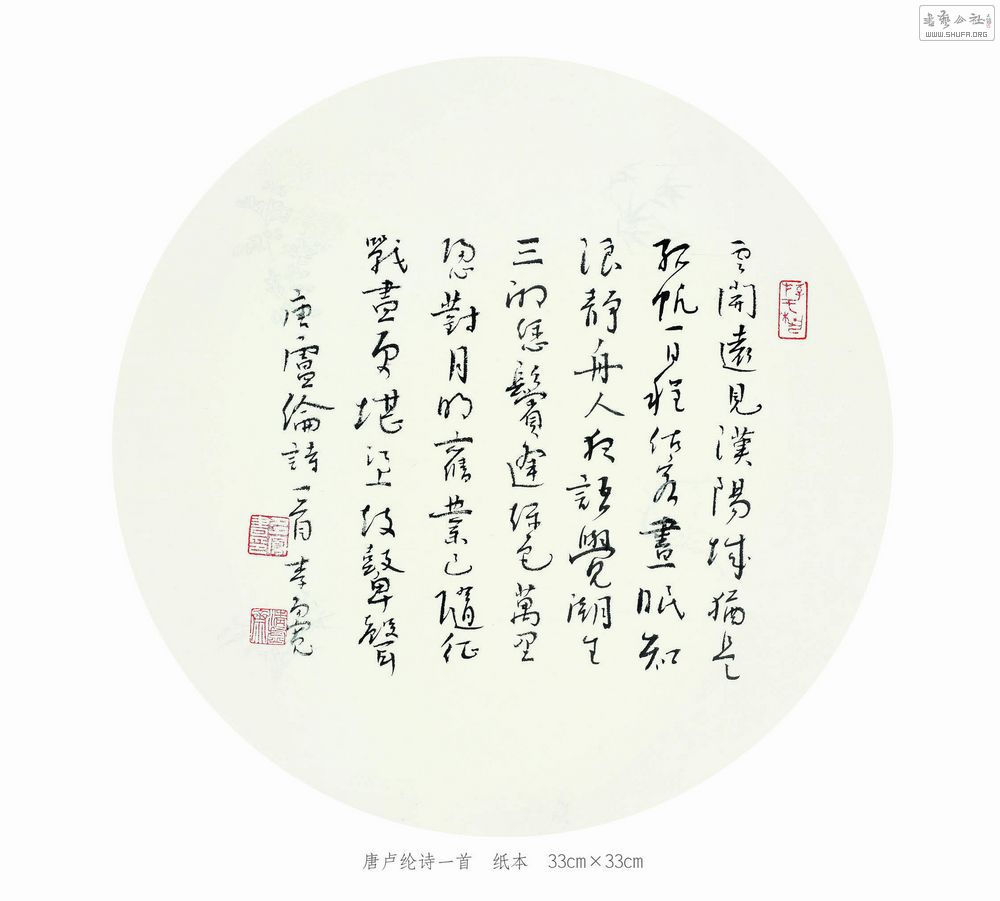 雲開遠見漢陽城猶是
孤帆一日程估客晝眠知
浪靜舟人夜語覺潮生
三湘愁鬢逢秋色萬里
歸心對月明舊業已隨征
戰盡更堪江上鼓鼙聲
唐盧綸詩一首
唐卢纶诗一首 纸本 33cm×33cm
书艺公社
WWW.SHUFA.ORG